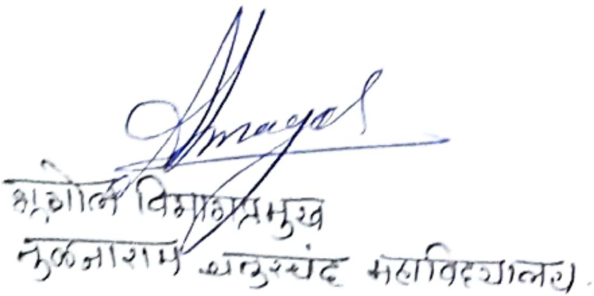 भूगोल विभागप्रमुख
तुळजाराम चतुरचंद महाविद्यालय.